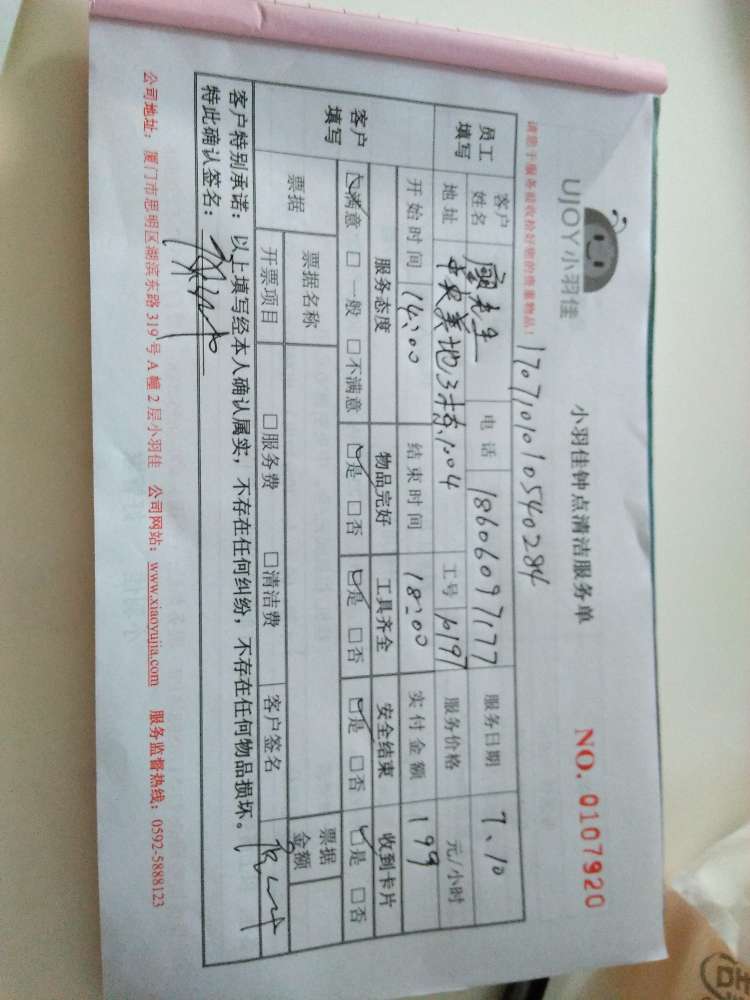 UJOY小羽佳
小羽佳钟点清洁服务单
NO. 0107920
请您于服务验收检好您的贵重物品！
1707101010540284
员工填写
客户姓名 廖先生 电话 18606097177 服务日期 7、10
地址 中央美地3栋1204 工号 6197 服务价格 元/小时
开始时间 14:00 结束时间 18:00 实付金额 199
客户填写
服务态度 物品完好 工具齐全 安全结束 收到卡片
☑满意 □一般 □不满意 ☑是 □否 ☑是 □否 ☑是 □否 ☑是 □否
票据 票据名称 票据金额
开票项目 □服务费 □清洁费 客户签名
客户特别承诺：以上填写经本人确认属实，不存在任何纠纷，不存在任何物品损坏。
特此确认签名：
公司地址：厦门市思明区湖滨东路319号A幢2层小羽佳 公司网站：www.xiaoyujia.com 服务监督热线：0592-5888123